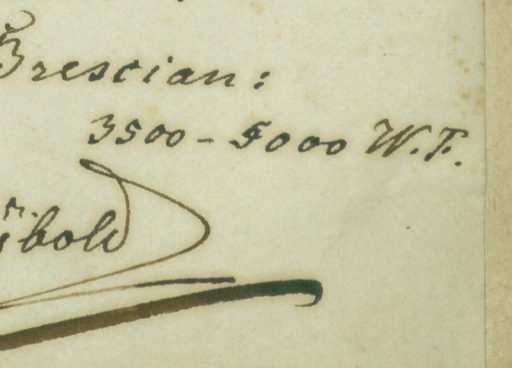 Brescian:
3500 - 5000 W. F.
ibold